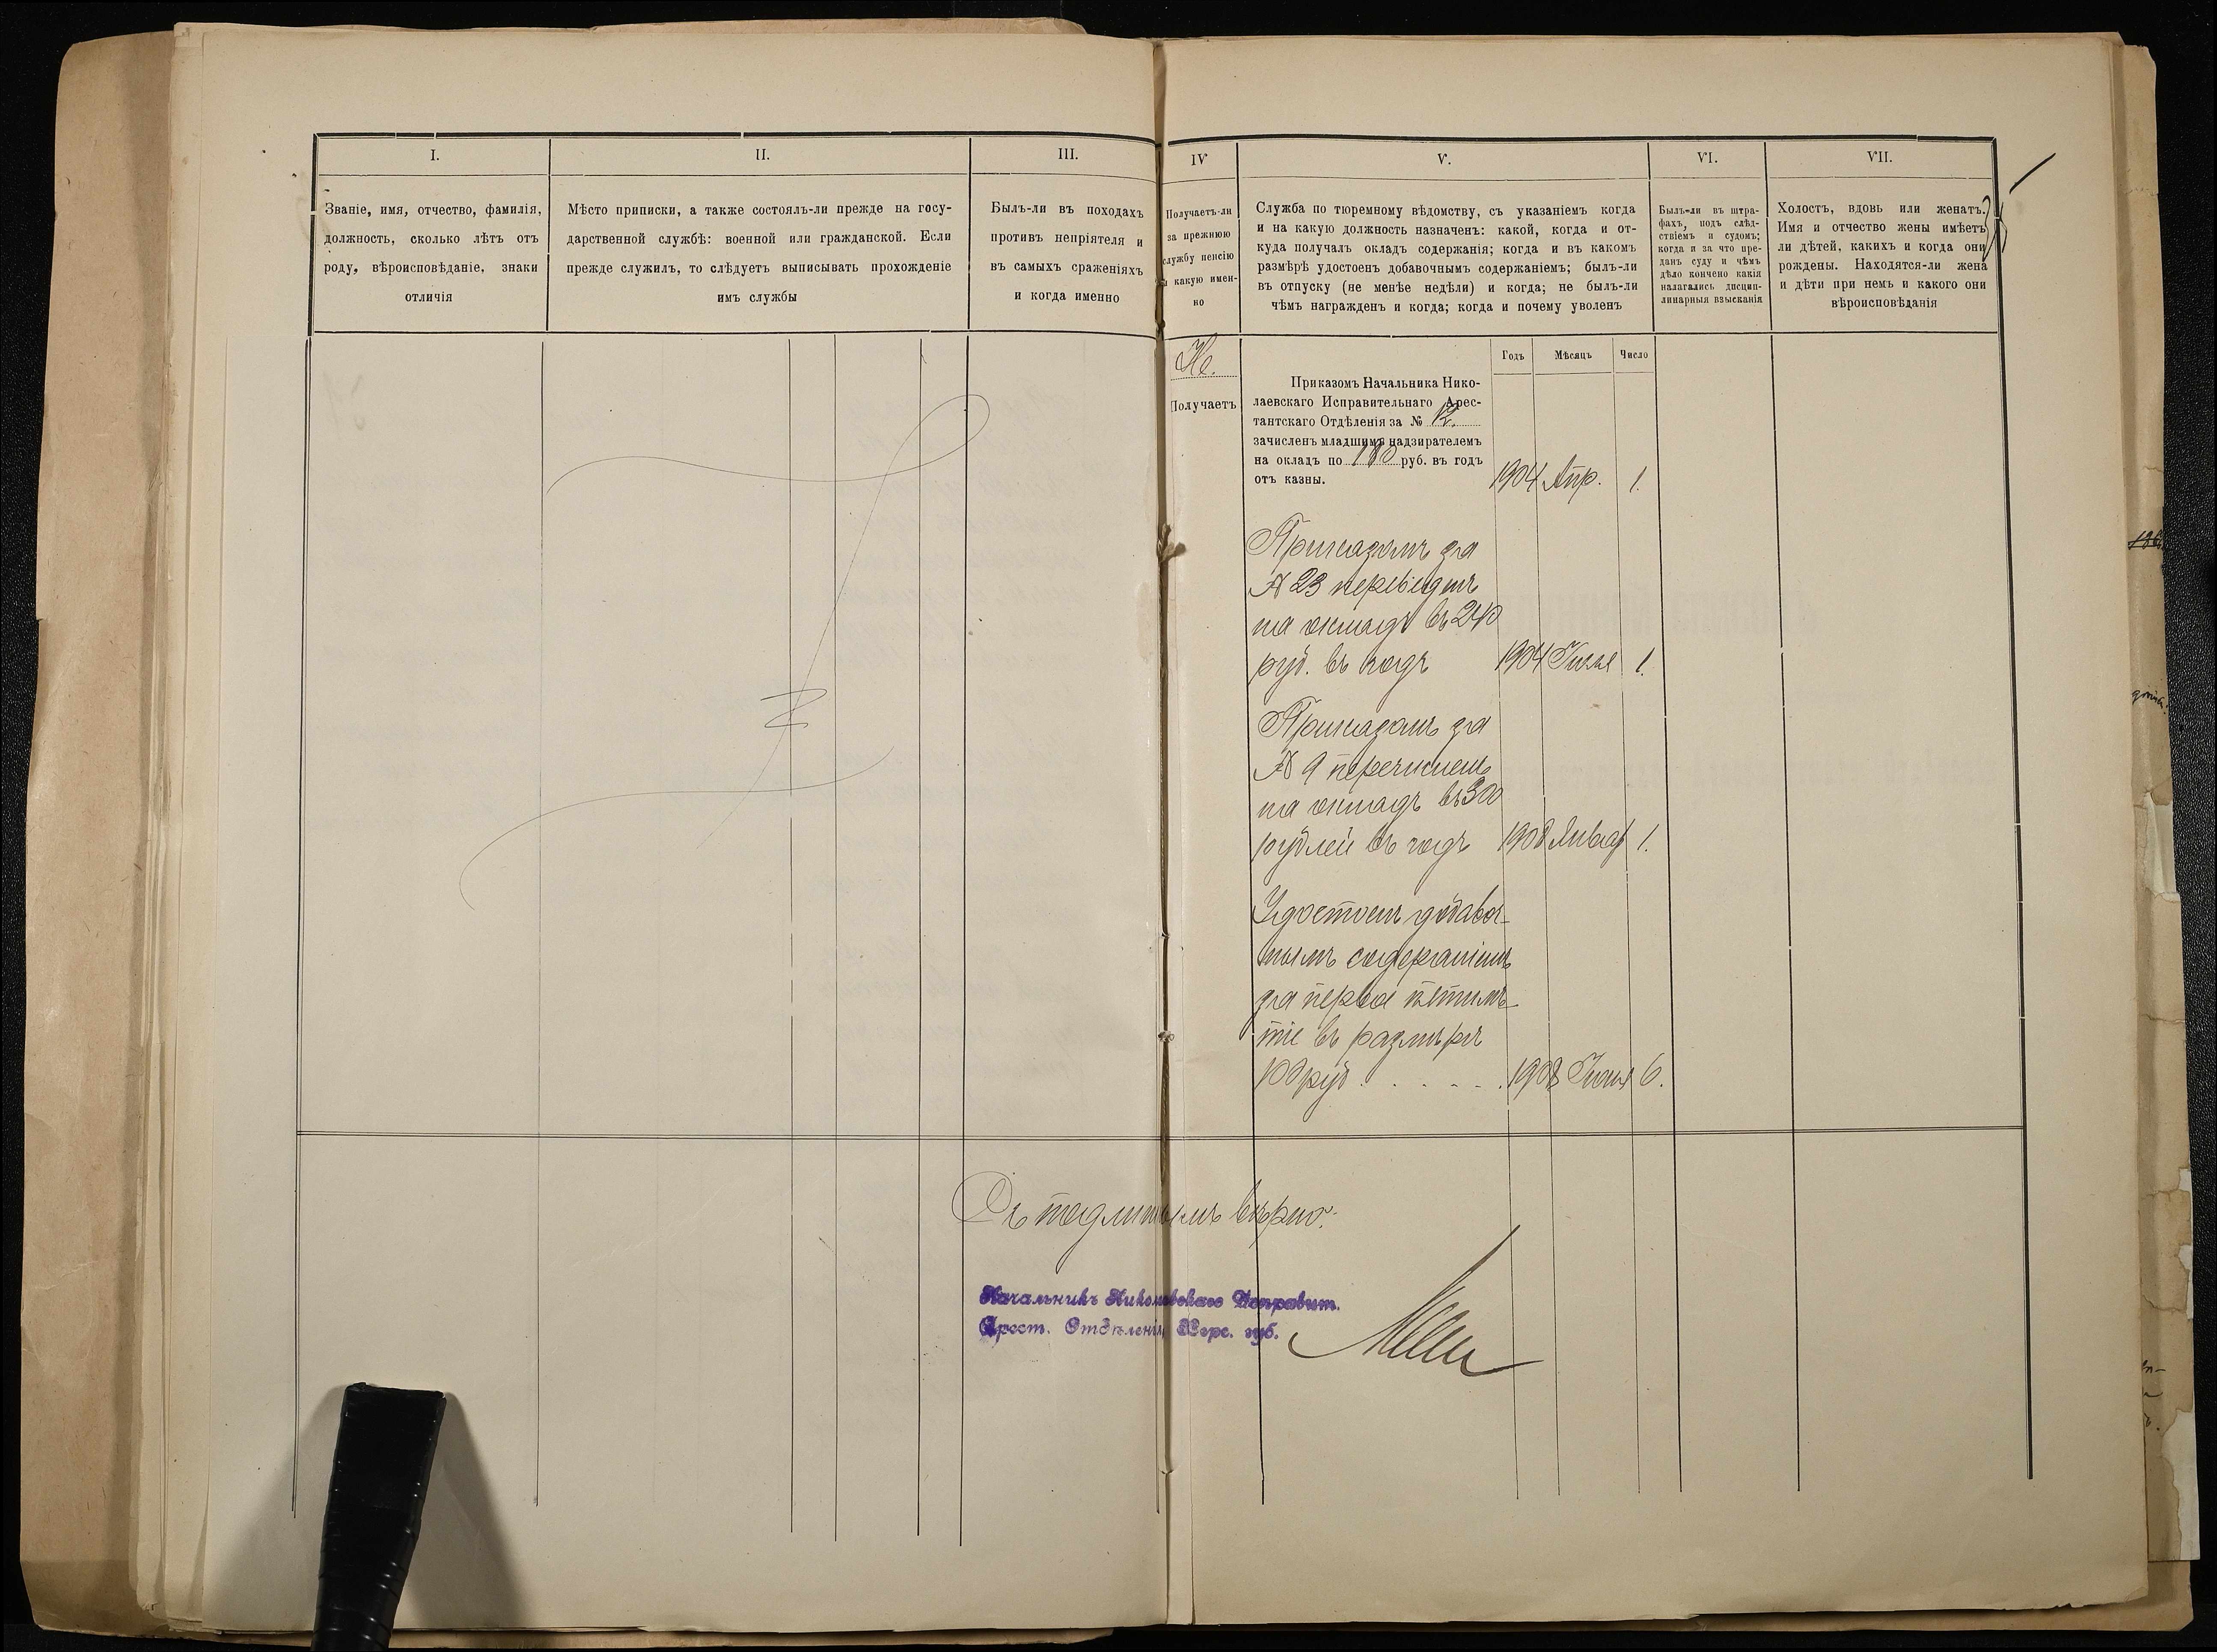 I.
Званіе, имя, отчество, фамилія,
должность, сколько лѣтъ отъ
роду, вѣроисповѣданіе, знаки
отличія
II.
Мѣсто приписки, а также состоялъ-ли прежде на госу-
дарственной службѣ: военной или гражданской. Если
прежде служилъ, то слѣдуетъ выписывать прохожденіе
имъ службы
III.
Былъ-ли въ походахъ
противъ непріятеля и
въ самыхъ сраженіяхъ
и когда именно
IV
Получаетъ-ли
за прежнюю
службу пенсію
и какую имен-
но
V.
Служба по тюремному вѣдомству, съ указаніемъ когда
и на какую должность назначенъ: какой, когда и от-
куда получалъ окладъ содержанія; когда и въ какомъ
размѣрѣ удостоенъ добавочнымъ содержаніемъ; былъ-ли
въ отпуску (не менѣе недѣли) и когда; не былъ-ли
чѣмъ награжденъ и когда; когда и почему уволенъ
VI.
Былъ-ли въ штра-
фахъ, подъ слѣд-
ствіемъ и судомъ;
когда и за что пре-
данъ суду и чѣмъ
дѣло кончено какія
налагались дисцип-
линарныя взысканія
VII.
Холостъ, вдовъ или женатъ.
Имя и отчество жены имѣетъ
ли дѣтей, какихъ и когда они
рождены. Находятся-ли жена
и дѣти при немъ и какого они
вѣроисповѣданія
Не.
Получаетъ
Годъ Мѣсяцъ Число
Приказомъ Начальника Нико-
лаевскаго Исправительнаго Арес-
тантскаго Отдѣленія за № 12.
зачисленъ младшимъ надзирателемъ
на окладъ по 180 руб. въ годъ
отъ казны. 1904 Апр. 1.
Приказомъ за
№ 23 переведенъ
на окладъ въ 240
руб. въ годъ 1904 1.
Приказомъ за
№ 9 перечисленъ
на окладъ въ 300
рублей въ годъ 1908 Январ 1.
Удостоенъ добавоч-
нымъ содержаніемъ
за первое пятилѣ-
тіе въ размѣрѣ
100 руб. . . . . . 1908 6.
Съ подлиннымъ вѣрно:
Начальникъ Николаевскаго Исправит.
Арест. Отдѣленія Херс. губ.